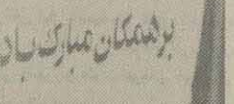 برهمکان مبارک باد